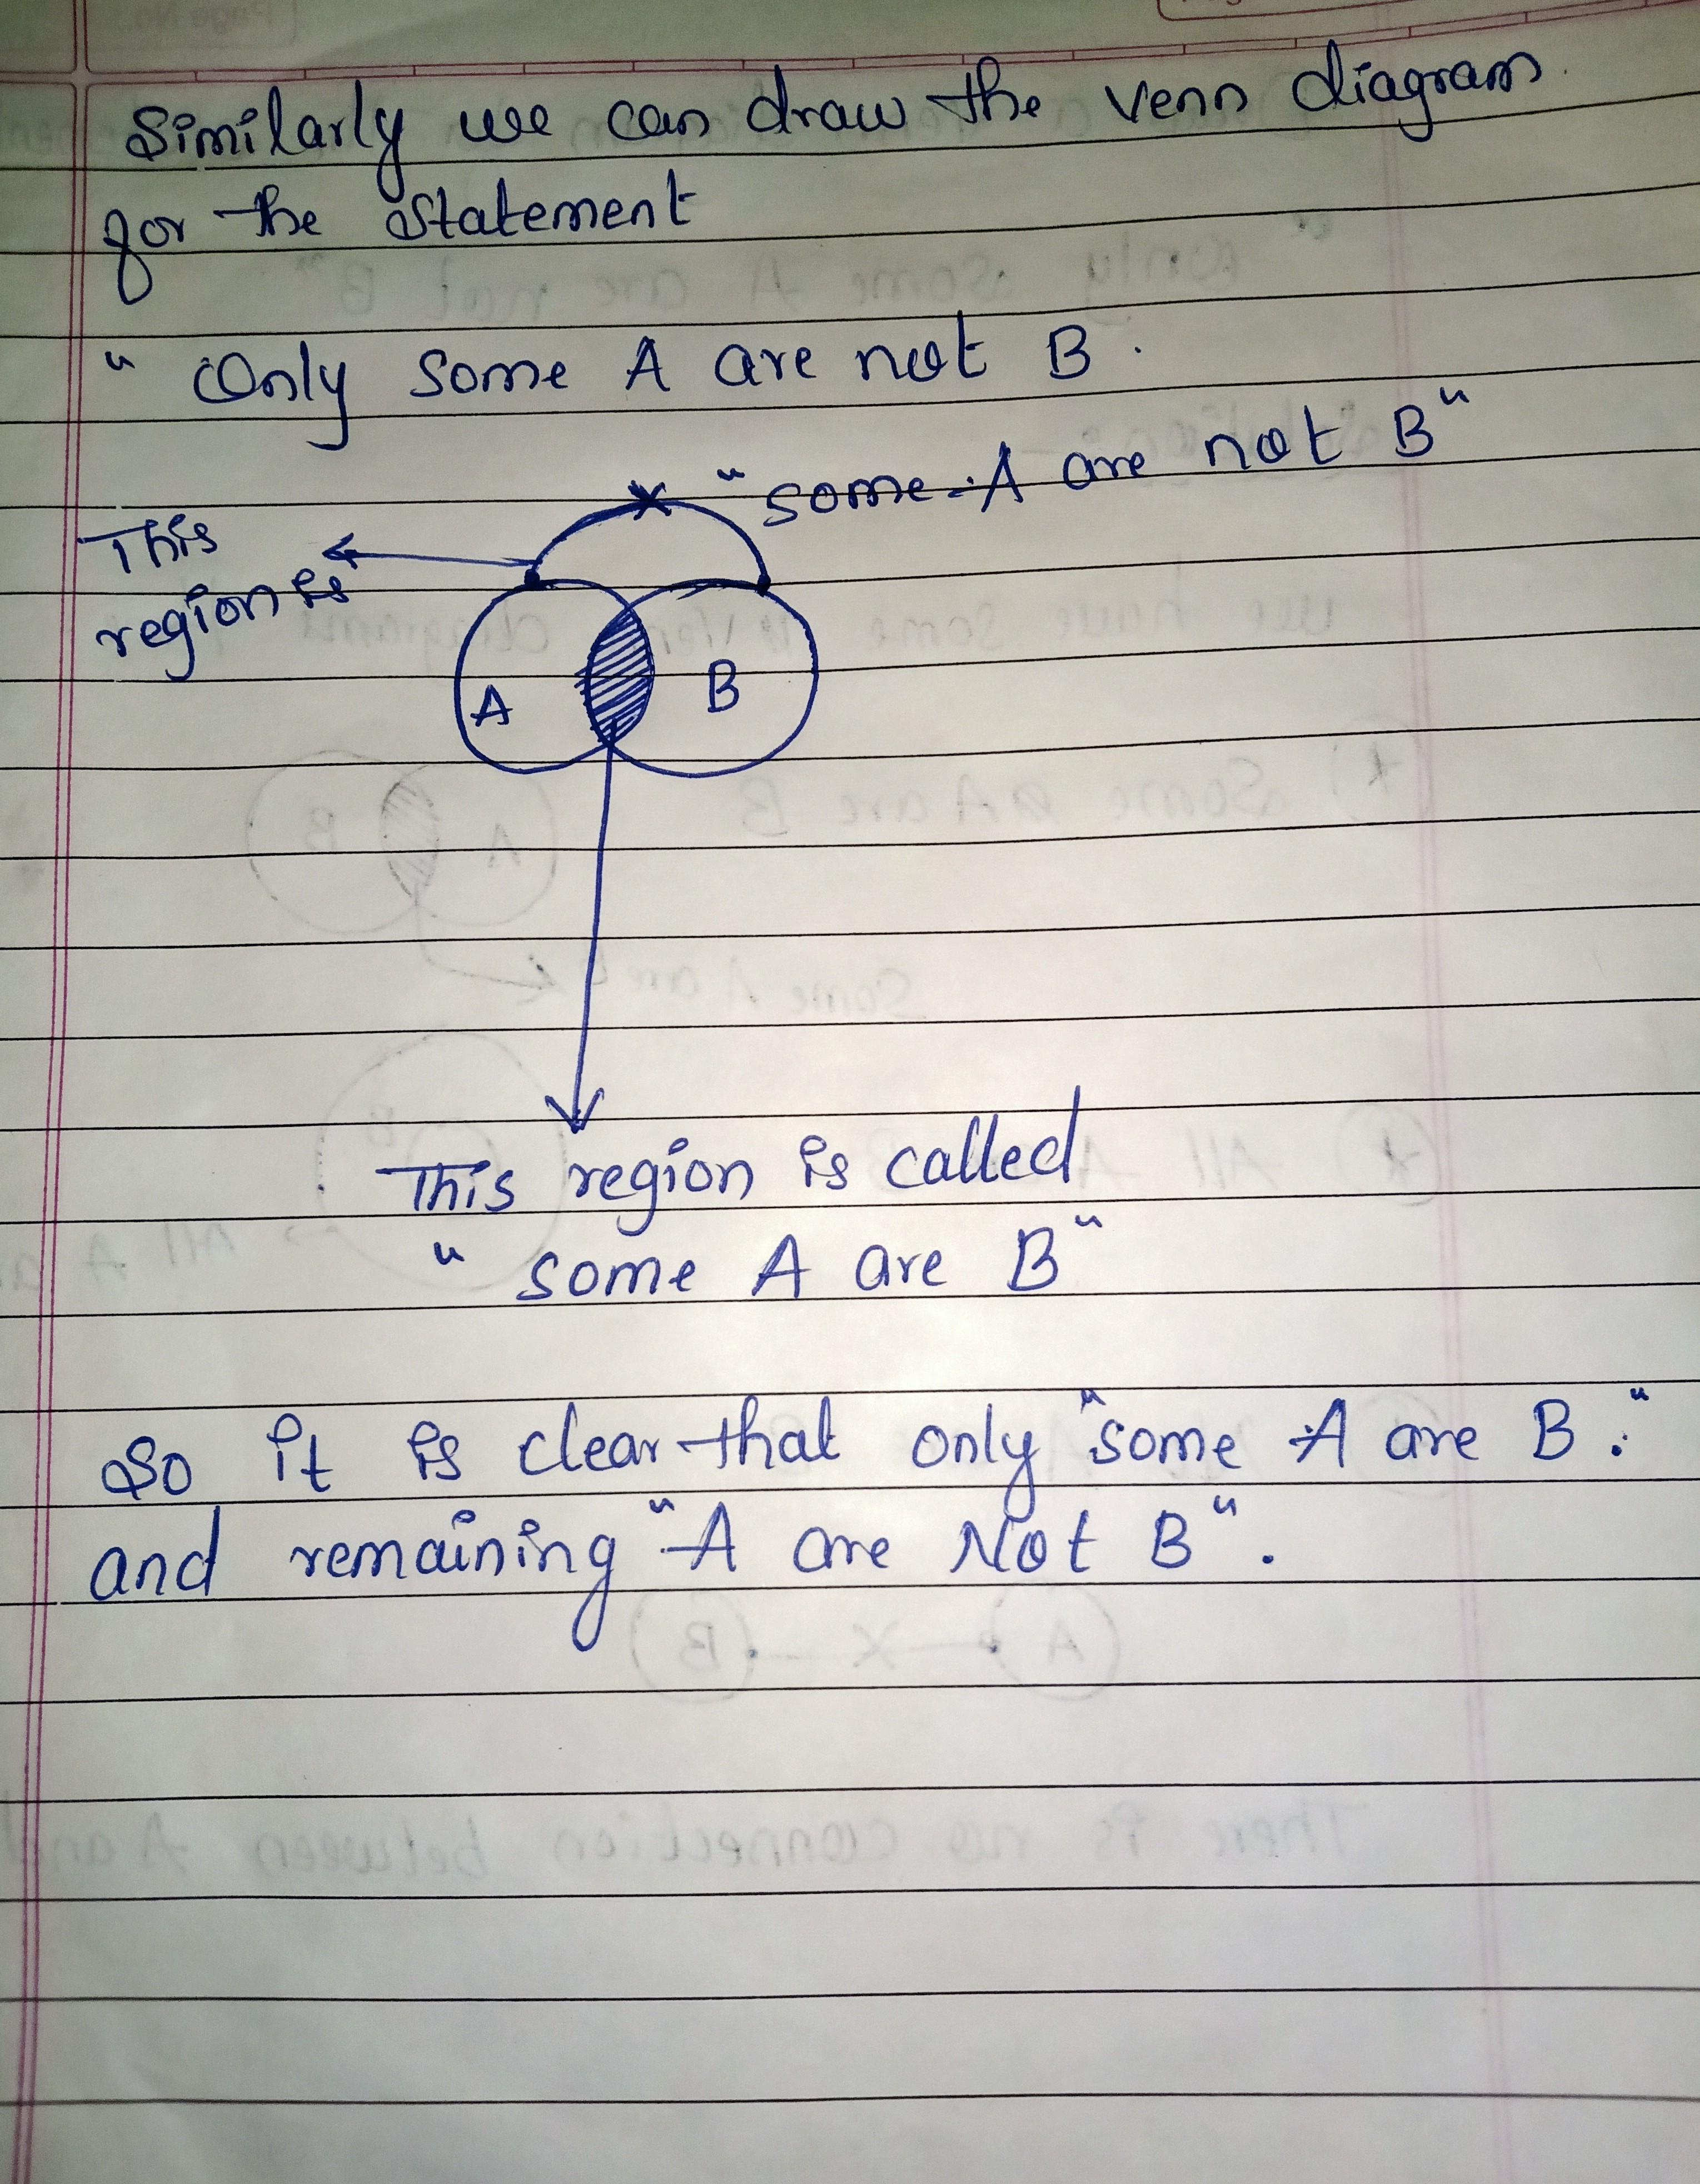 Similarly we can draw the Venn diagram.
for the statement
" Only some A are not B.
"some A are not B"
This
region is
A
B
This region is called
" some A are B"
So it is clear that only "some A are B."
and remaining "A are Not B".